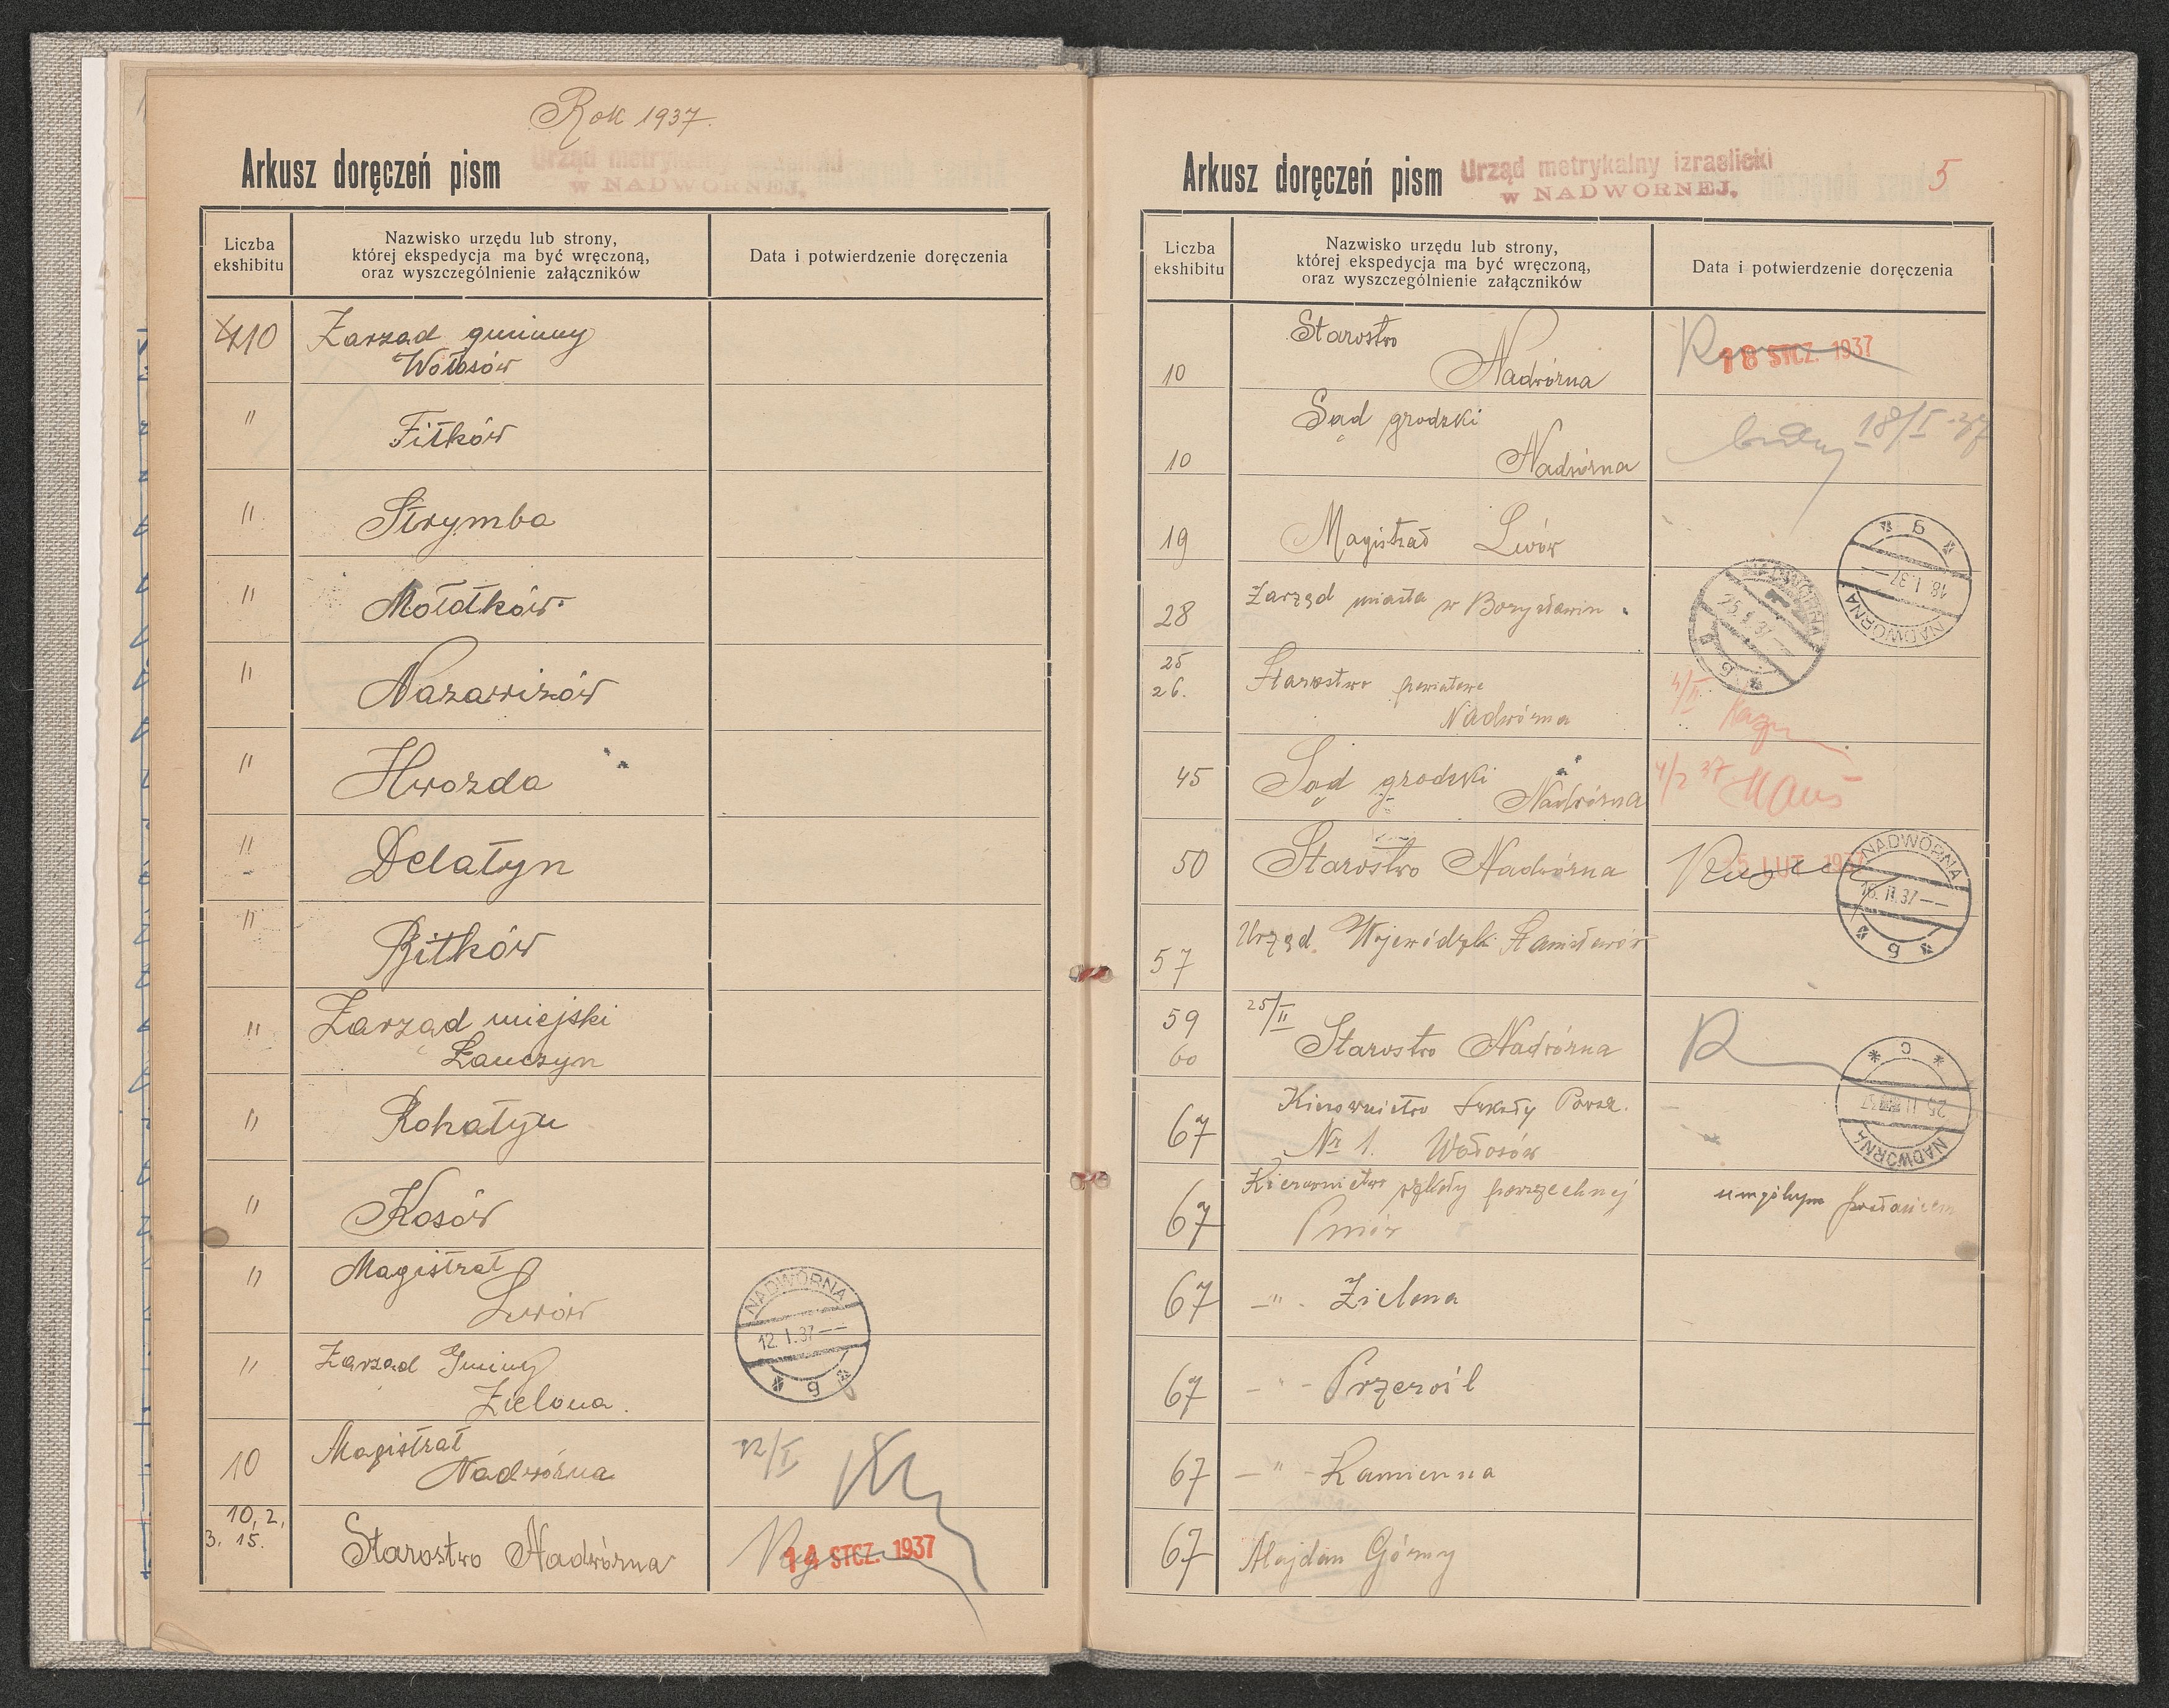 Rok 1937.
Arkusz doręczeń pism
Urząd metrykalny izraelicki
w NADWORNEJ.
Liczba
ekshibitu
Nazwisko urzędu lub strony,
której ekspedycja ma być wręczoną,
oraz wyszczególnienie załączników
Data i potwierdzenie doręczenia
10 Zarząd gminny
Wołosów
" Fitków
" Strymba
" Mołotków
" Nazawizów
" Hwozda
" Delatyn
" Bitków
" Zarząd miejski
Łanczyn
" Rohatyn
" Kosów
" Magistrat
Lwów
NADWÓRNA
12.I.37
g
" Zarząd Gminny
Zielona.
10 Magistrat
Nadwórna
12/I
10, 2,
3. 15.
Starostwo Nadwórna
14 STCZ. 1937
Arkusz doręczeń pism
Urząd metrykalny izraelicki
w NADWORNEJ.
5
Liczba
ekshibitu
Nazwisko urzędu lub strony,
której ekspedycja ma być wręczoną,
oraz wyszczególnienie załączników
Data i potwierdzenie doręczenia
Starostwo
10 Nadwórna
18 STCZ. 1937
Sąd grodzki
10 Nadwórna
18/I 37
19 Magistrat Lwów
NADWÓRNA
18.I.37
g
28 Zarząd miasta w Borysławiu.
NADWÓRNA
25.I.37
g
25
26.
Starostwo powiatowe
Nadwórna
4/II
45 Sąd grodzki
Nadwórna
4/2 37
50 Starostwo Nadwórna
15 LUT 1937
NADWÓRNA
16.II.37
g
57 Urząd Wojewódzki Stanisławów
59
60
25/II
Starostwo Nadwórna
NADWÓRNA
25.II.37
c
67 Kierownictwo Szkoły Powsz.
Nr 1. Wołosów
67 Kierownictwo szkoły powszechnej
Pniów
umyślnym posłańcem
67 -"- Zielona
67 -"- Przerośl
67 -"- Kamienna
67 Majdan Górny